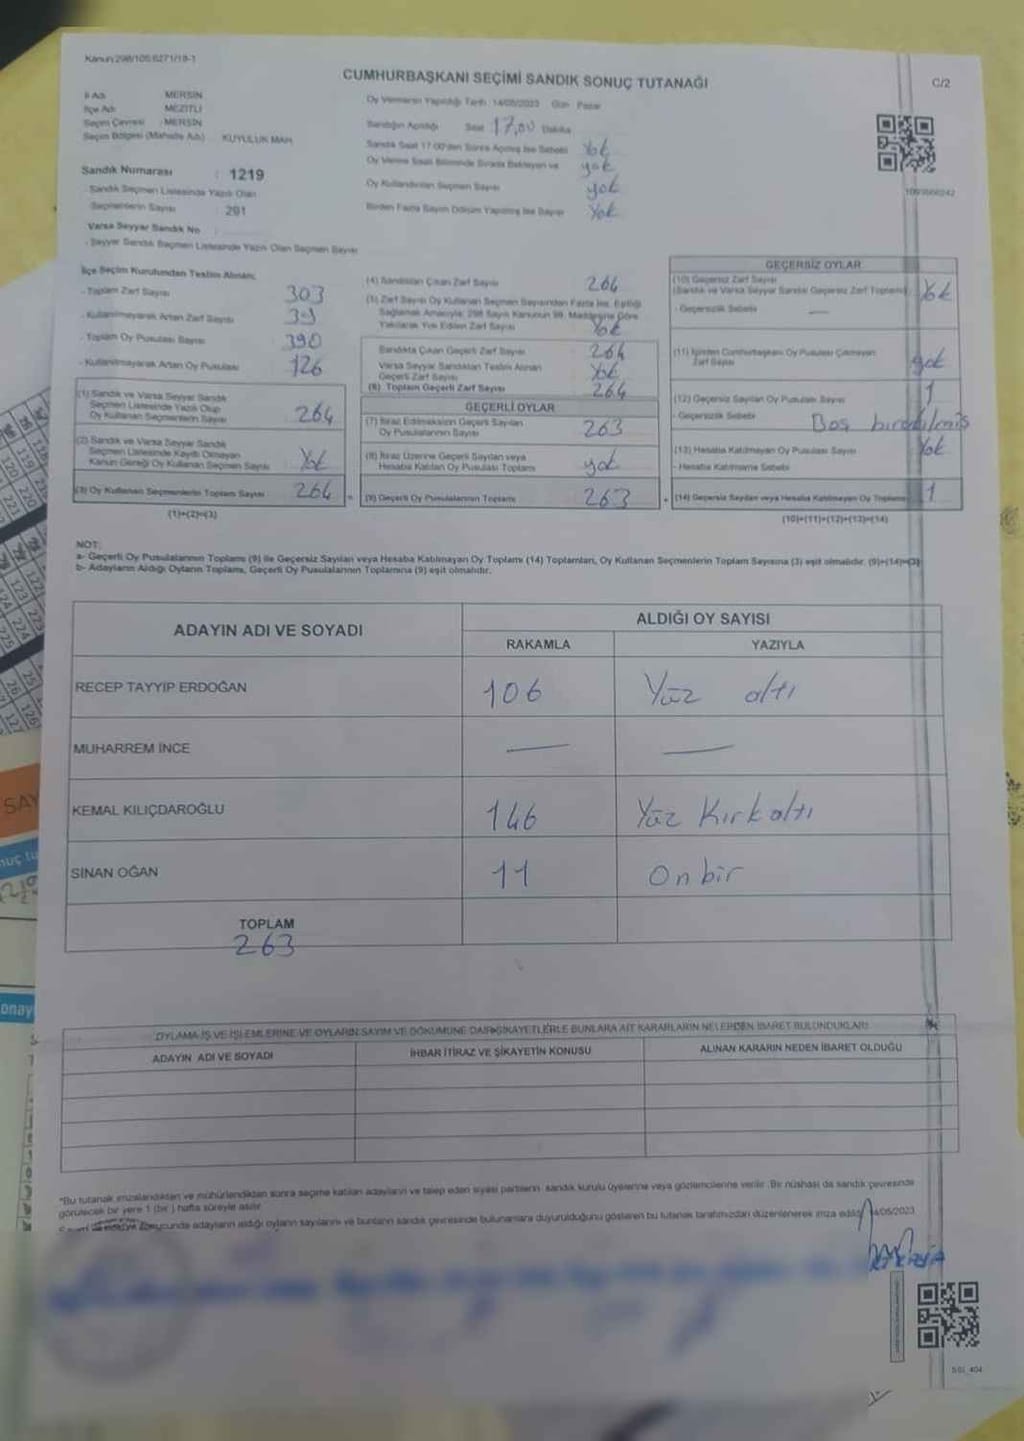 Kanun:298/105;6271/18-1
CUMHURBAŞKANI SEÇİMİ SANDIK SONUÇ TUTANAĞI
C/2
İl Adı MERSİN
İlçe Adı MEZİTLİ
Seçim Çevresi : MERSİN
Seçim Bölgesi (Mahalle Adı) KUYULUK MAH
Oy Vermenin Yapıldığı Tarih: 14/05/2023 Gün Pazar
Sandığın Açıldığı Saat 17,00 Dakika
Sandık Saat 17.00'den Sonra Açılmış İse Sebebi Yok
Oy Verme Saati Bitiminde Sırada Bekleyen ve yok
Oy Kullandırılan Seçmen Sayısı yok
Birden Fazla Sayım Döküm Yapılmış İse Sayısı Yok
Sandık Numarası : 1219
- Sandık Seçmen Listesinde Yazılı Olan
Seçmenlerin Sayısı 291
Varsa Seyyar Sandık No
- Seyyar Sandık Seçmen Listesinde Yazılı Olan Seçmen Sayısı
İlçe Seçim Kurulundan Teslim Alınan;
- Toplam Zarf Sayısı 303
- Kullanılmayarak Artan Zarf Sayısı 39
- Toplam Oy Pusulası Sayısı 390
- Kullanılmayarak Artan Oy Pusulası 126
(1) Sandık ve Varsa Seyyar Sandık
Seçmen Listesinde Yazılı Olup
Oy Kullanan Seçmenlerin Sayısı 264
(2) Sandık ve Varsa Seyyar Sandık
Seçmen Listesinde Kayıtlı Olmayan
Kanun Gereği Oy Kullanan Seçmen Sayısı Yok
(3) Oy Kullanan Seçmenlerin Toplam Sayısı 264
(1)+(2)=(3)
(4) Sandıktan Çıkan Zarf Sayısı 264
(5) Zarf Sayısı Oy Kullanan Seçmen Sayısından Fazla İse, Eşitliği
Sağlamak Amacıyla; 298 Sayılı Kanunun 98. Maddesine Göre
Yakılarak Yok Edilen Zarf Sayısı Yok
Sandıkta Çıkan Geçerli Zarf Sayısı 264
Varsa Seyyar Sandıktan Teslim Alınan
Geçerli Zarf Sayısı Yok
(6) Toplam Geçerli Zarf Sayısı 264
GEÇERLİ OYLAR
(7) İtiraz Edilmeksizin Geçerli Sayılan
Oy Pusulalarının Sayısı 263
(8) İtiraz Üzerine Geçerli Sayılan veya
Hesaba Katılan Oy Pusulası Toplamı yok
(9) Geçerli Oy Pusulalarının Toplamı 263
GEÇERSİZ OYLAR
(10) Geçersiz Zarf Sayısı
(Sandık ve Varsa Seyyar Sandık Geçersiz Zarf Toplamı) Yok
- Geçersizlik Sebebi —
(11) İçinden Cumhurbaşkanı Oy Pusulası Çıkmayan
Zarf Sayısı yok
(12) Geçersiz Sayılan Oy Pusulası Sayısı 1
- Geçersizlik Sebebi Boş bırakılmış
(13) Hesaba Katılmayan Oy Pusulası Sayısı Yok
- Hesaba Katılmama Sebebi
(14) Geçersiz Sayılan veya Hesaba Katılmayan Oy Toplamı 1
(10)+(11)+(12)+(13)=(14)
NOT:
a- Geçerli Oy Pusulalarının Toplamı (9) ile Geçersiz Sayılan veya Hesaba Katılmayan Oy Toplamı (14) Toplamları, Oy Kullanan Seçmenlerin Toplam Sayısına (3) eşit olmalıdır. (9)+(14)=(3)
b- Adayların Aldığı Oyların Toplamı, Geçerli Oy Pusulalarının Toplamına (9) eşit olmalıdır.
ADAYIN ADI VE SOYADI ALDIĞI OY SAYISI
RAKAMLA YAZIYLA
RECEP TAYYİP ERDOĞAN 106 Yüz altı
MUHARREM İNCE — —
KEMAL KILIÇDAROĞLU 146 Yüz Kırk altı
SİNAN OĞAN 11 On bir
TOPLAM
263
OYLAMA İŞ VE İŞLEMLERİNE VE OYLARIN SAYIM VE DÖKÜMÜNE DAİR ŞİKAYETLERLE BUNLARA AİT KARARLARIN NELERDEN İBARET BULUNDUKLARI
ADAYIN ADI VE SOYADI İHBAR İTİRAZ VE ŞİKAYETİN KONUSU ALINAN KARARIN NEDEN İBARET OLDUĞU
*Bu tutanak imzalandıktan ve mühürlendikten sonra seçime katılan adayların ve talep eden siyasi partilerin sandık kurulu üyelerine veya gözlemcilerine verilir. Bir nüshası da sandık çevresinde
görülecek bir yere 1 (bir) hafta süreyle asılır.
sonucunda adayların aldığı oyların sayılarını ve bunların sandık çevresinde bulunanlara duyurulduğunu gösteren bu tutanak tarafımızdan düzenlenerek imza edildi 14/05/2023